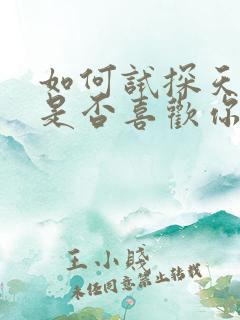 如何試探天
是否喜歡你
王小賤
未經同意禁止轉載